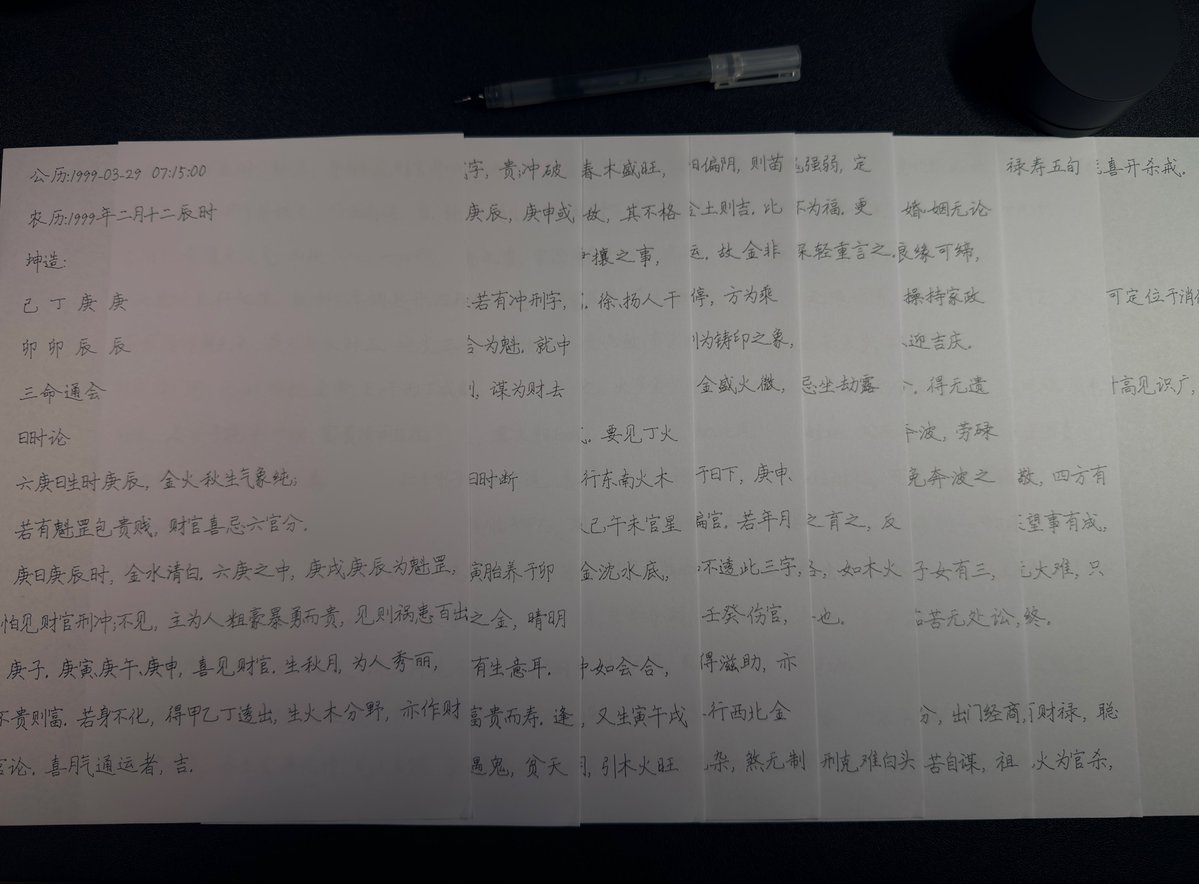 公历:1999-03-29 07:15:00
农历:1999年二月十二辰时
坤造:
己 丁 庚 庚
卯 卯 辰 辰
三命通会
日时论
六庚日生时庚辰，金火秋生气象纯;
若有魁罡包贵贱，财官喜忌六官分.
庚日庚辰时，金水清白.六庚之中，庚戌庚辰为魁罡，
怕见财官刑冲;不见，主为人粗豪暴勇而贵，见则祸患百出
庚子.庚寅、庚午、庚申，喜见财官.生秋月，为人秀丽，
不贵则富.若身不化，得甲乙丁透出，生火木分野，亦作财
官论.喜月气通运者，吉.
字，贵;冲破
庚辰，庚申或
若有冲刑字，
合为魁.就中
，谋为财去
日时断
寅胎养于卯
之金，晴明
有生意耳.
富贵而寿.逢
遇鬼，贫夭
春木盛旺，
故，其不格
攘之事，
徐、扬人干
要见丁火
行东南火木
己午未官星
金沈水底，
中如会合，
，又生寅午戌
，引木火旺
偏阴，则苗
土则吉.比
运.故金非
停，方为乘
为铸印之象，
金盛火微，
于日下，庚申、
偏官，若年月
不透此三字，
壬癸伤官，
得滋助，亦
行西北金
杂，煞无制
强弱，定
不为福.更
采轻重言之.
忌坐劫露
之育之，反
，如木火
也.
刑克难白头
婚姻无论
良缘可缔，
操持家政
迎吉庆.
得无遗
奔波，劳碌
免奔波之
子女有三，
苦无处讼，
分，出门经商，
苦自谋，祖
禄寿五旬
敬，四方有
望事有成，
无大难，只
终.
财禄，聪
火为官杀，
喜开杀戒.
可定位于消
高见识广，